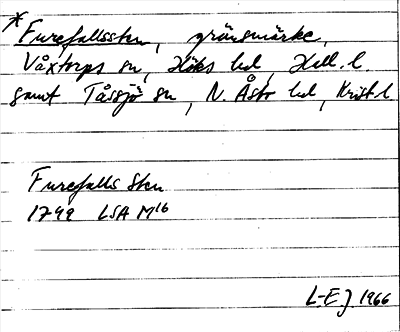 *Furefallssten, gränsmärke,
Våxtorps sn, Höks hd, Hall. l.
samt Tåssjö sn, N. Åsbo hd, Krist. l.
Furefalls Sten
1749 LSA M16
L-EJ 1966